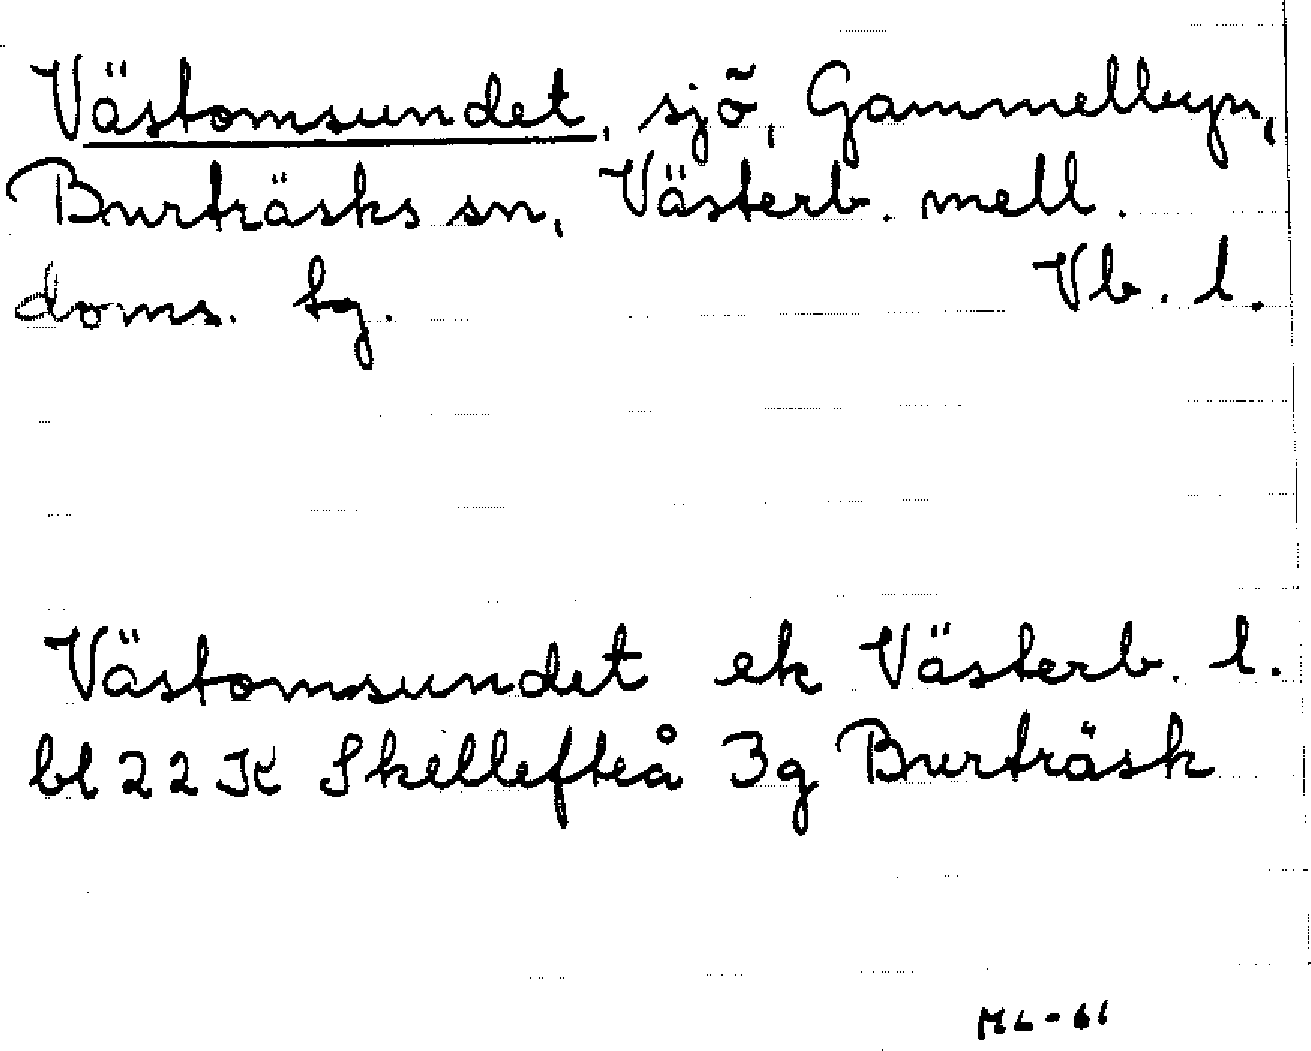 Västomsundet, sjö, Gammelbyn,
Burträsks sn, Västerb. mell.
doms. tg. Vb. l.
Västomsundet ek Västerb. l.
bl 22 K Skellefteå 3g Burträsk
ML-61